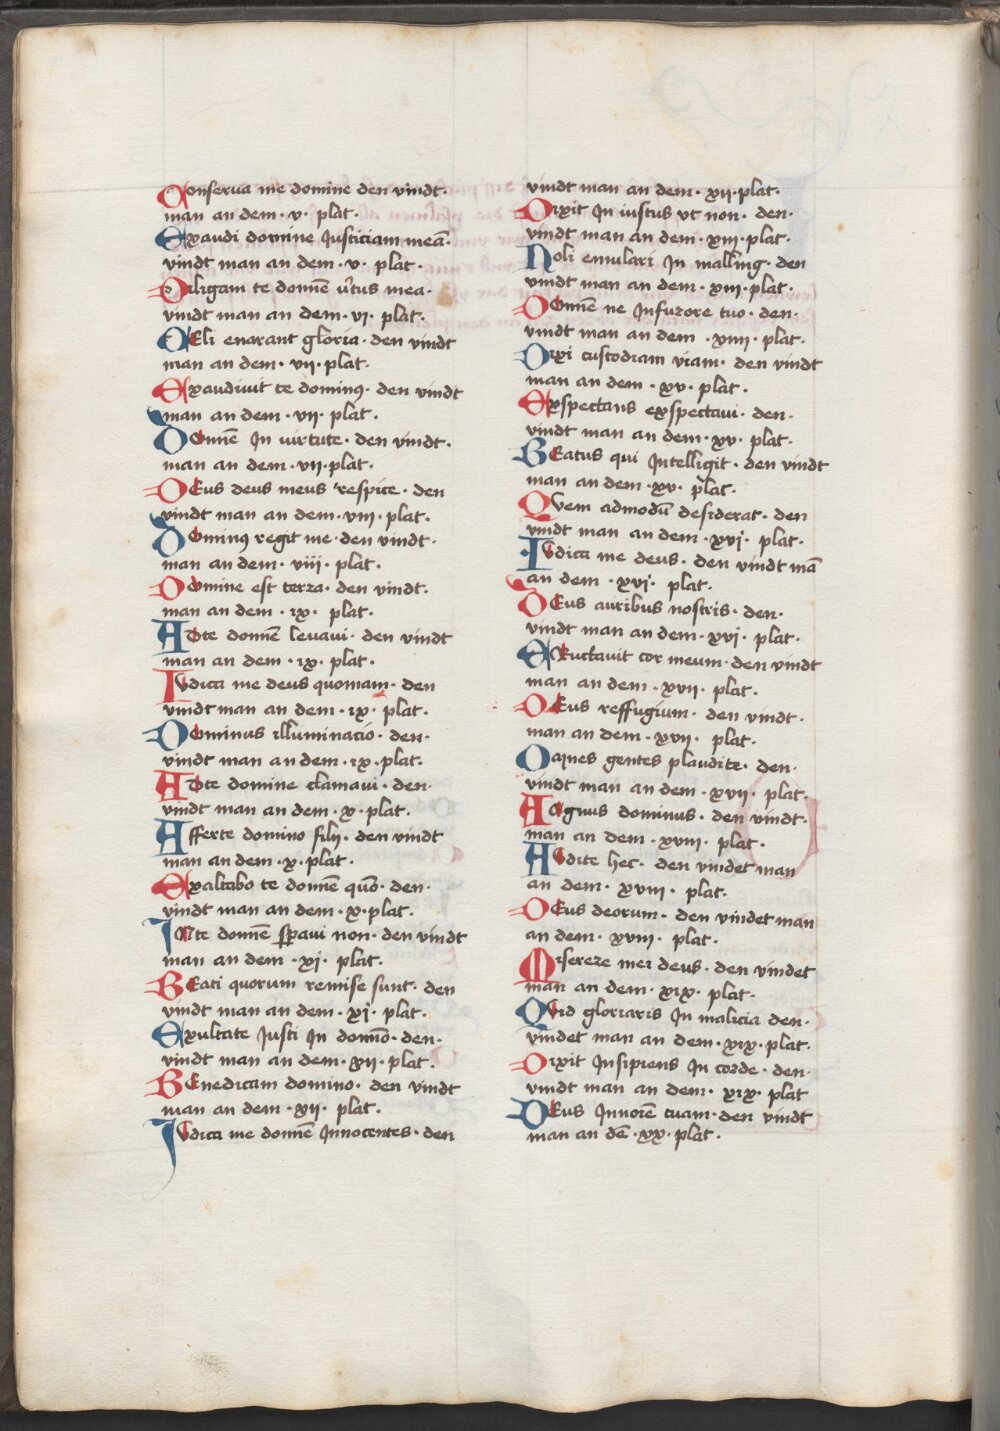 Conserua me domine den vindt·
man an dem · v · plat·
Exaudi domine Justiciam meā·
vindt man an dem · v · plat·
Diligam te domē v̄tus mea·
vindt man an dem · vi · plat·
CEli enarant gloria · den vindt
man an dem · vii · plat·
Exaudiuit te dominꝯ · den vindt
man an dem · vii · plat·
DOmē In uirtute · den vindt·
man an dem · vii · plat·
DEus deus meus respice · den
vindt man an dem · viii · plat·
DOminꝯ regit me · den vindt·
man an dem · viii · plat·
DOmine est terra · den vindt·
man an dem · ix · plat·
ADte domē leuaui · den vindt
man an dem · ix · plat·
IVdica me deus quoniam · den
vindt man an dem · ix · plat·
DOminus illuminacio · den·
vindt man an dem · ix · plat·
ADte domine clamaui · den·
vindt man an dem · x · plat·
Afferte domino filij · den vindt
man an dem · x · plat·
Exaltabo te domē quō · den·
vindt man an dem · x · plat·
INte domē sꝑaui non · den vindt
man an dem · xj · plat·
BEati quorum remise sunt · den
vindt man an dem · xj · plat·
Exultate Justi In domō · den·
vindt man an dem · xij · plat·
BEnedicam domino · den vindt
man an dem · xij · plat·
IVdica me domē Innocentes · den
vindt man an dem · xij · plat·
Dixit In iustus vt non · den·
vindt man an dem · xiij · plat·
Noli emulari In malling · den
vindt man an dem · xiij · plat·
DOmē ne Infurore tuo · den·
vindt man an dem · xiiij · plat·
Dixi custodiam viam · den vindt
man an dem · xv · plat·
Exspectans exspectaui · den·
vindt man an dem · xv · plat·
BEatus qui Intelligit · den vindt
man an dem · xv · plat·
QVem admodū desiderat · den
vindt man an dem · xvj · plat·
IVdica me deus · den vindt mā
an dem · xvj · plat·
DEus auribus nostris · den·
vindt man an dem · xvj · plat·
ERuctauit cor meum · den vindt
man an dem · xvij · plat·
DEus reffugium · den vindt·
man an dem · xvij · plat·
Omnes gentes plaudite · den·
vindt man an dem · xvij · plat·
Magnus dominus · den vindt·
man an dem · xviij · plat·
AVdite hec · den vindet man
an dem · xviij · plat·
DEus deorum · den vindet man
an dem · xviij · plat·
Miserere mei deus · den vindet
man an dem · xix · plat·
QVid gloriaris In malicia den·
vindet man an dem · xix · plat·
Dixit Insipiens In corde · den·
vindt man an dem · xix · plat
DEus Innoīe tuam · den vindt
man an dē · xx · plat·